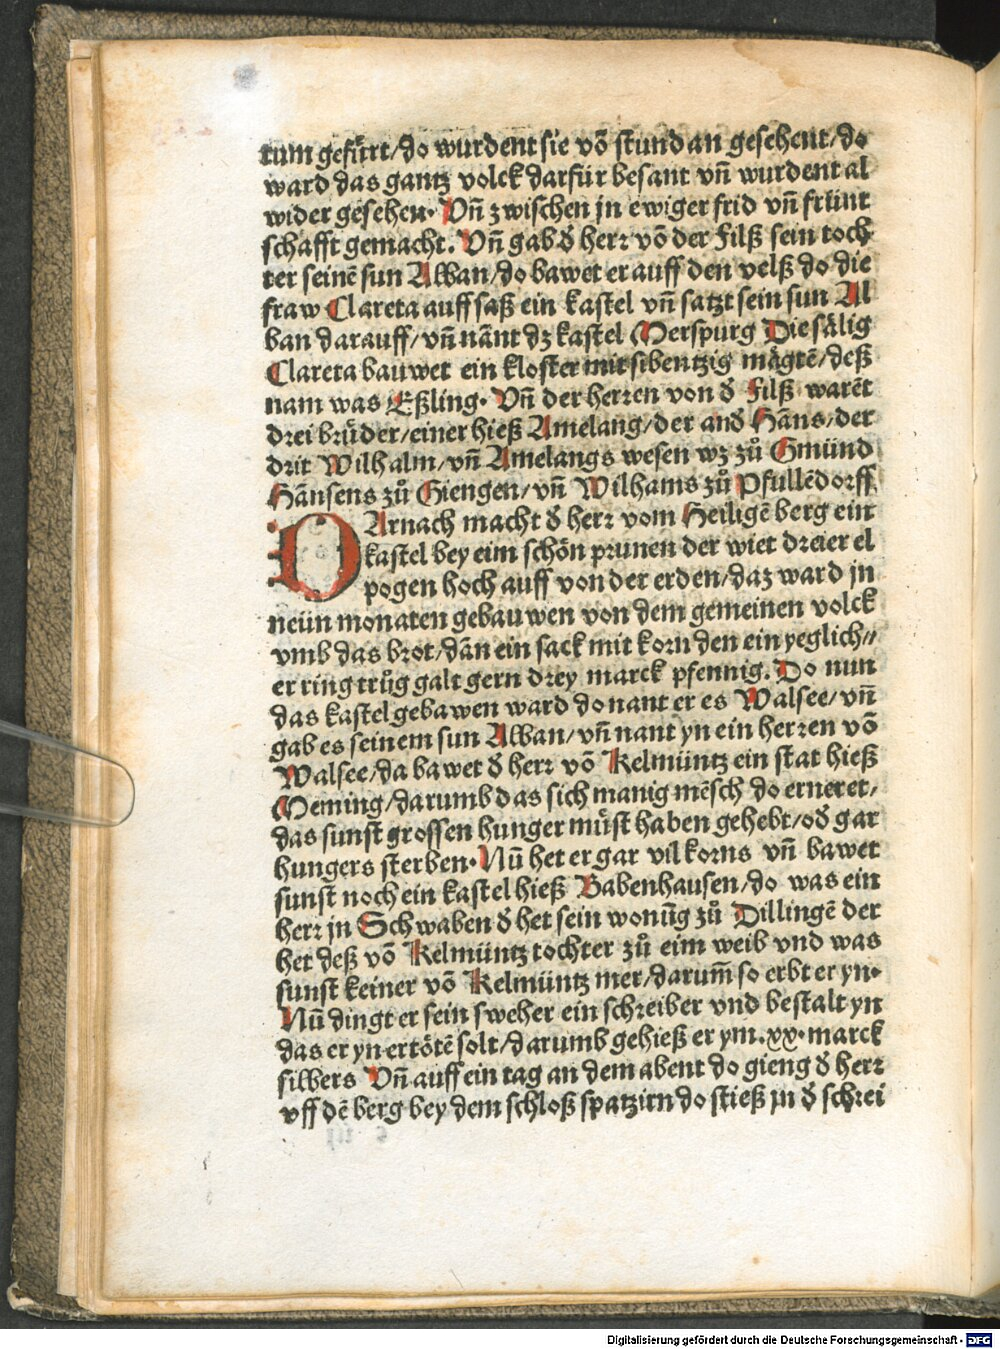 tum gefürt/do wurdent sie vō stund an gesehent/do
ward das gantz volck darfür besant vñ wurdent al
wider gesehen. Vñ zwischen jn ewiger frid vñ frünt
schafft gemacht. Vñ gab đ herr vō der Filß sein toch
ter seinē sun Alban/do bawet er auff den velß do die
fraw Clareta auff saß ein kastel vñ satzt sein sun Al
ban darauff/vñ nānt dz kastel Merspurg Die sålig
Clareta bauwet ein kloster mit sibentzig mågtē/deß
nam was Eßling. Vñ der herren von đ Filß warēt
drei brüder/einer hieß Amelang/der anđ Hāns/der
drit Wilhalm/vñ Amelangs wesen wz zů Gmünd
Hānsens zů Giengen/vñ Wilhams zů Pfullēdorff
DArnach macht đ herr vom Heiligē berg ein
kastel bey eim schön prunen der wiet dreier el
pogen hoch auff von der erden/daz ward jn
neün monaten gebauwen von dem gemeinen volck
vmb das brot/dān ein sack mit korn den ein yeglich//
er ring trůg galt gern drey marck pfennig. Do nun
das kastel gebawen ward do nant er es Walsee/vñ
gab es seinem sun Alban/vñ nant yn ein herren vō
Walsee/da bawet đ herr vō Kelmüntz ein stat hieß
Meming/darumb das sich manig mēsch do erneret/
das sunst grossen hunger müst haben gehebt/ođ gar
hungers sterben. Nū het er gar vil korns vñ bawet
sunst noch ein kastel hieß Babenhausen/do was ein
herr jn Schwaben đ het sein wonūg zů Dillingē der
het deß vō Kelmüntz tochter zů eim weib vnd was
sunst keiner vō Kelmüntz mer/darum̄ so erbt er yn.
Nū dingt er sein sweher ein schreiber vnd bestalt yn
das er yn ertötē solt/darumb gehieß er ym .xx. marck
silbers Vñ auff ein tag an dem abent do gieng đ herr
vff dē berg bey dem schloß spatzirn do stieß jn đ schrei
Digitalisierung gefördert durch die Deutsche Forschungsgemeinschaft - DFG